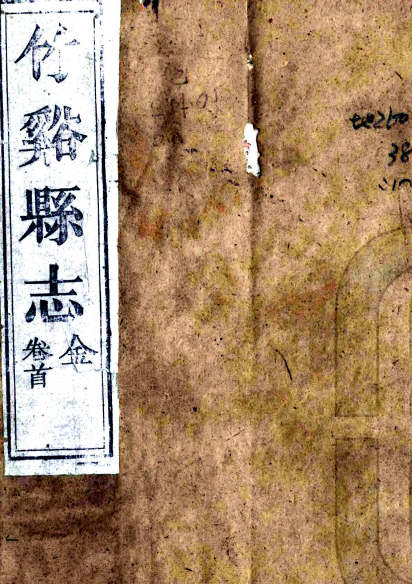 竹谿縣志
金
卷首
38